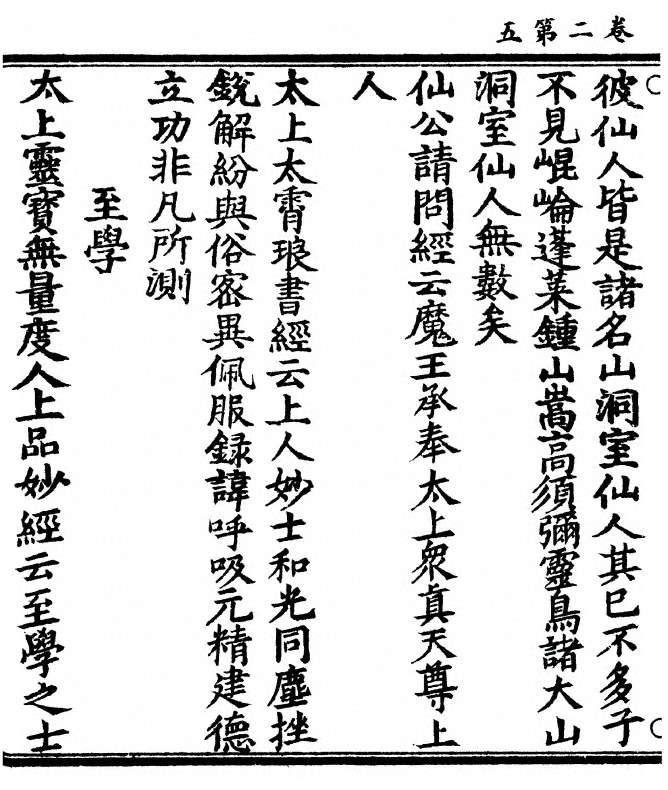 卷二第五
彼仙人皆是諸名山洞室仙人其已不多子
不見崐崘蓬萊鍾山嵩高須彌靈鳥諸大山
洞室仙人無數矣
仙公請問經云魔王承奉太上衆真天尊上
人
太上太霄琅書經云上人妙士和光同塵挫
銳解紛與俗密異佩服録諱呼吸元精建德
立功非凡所測
至學
太上靈寶無量度人上品妙經云至學之士